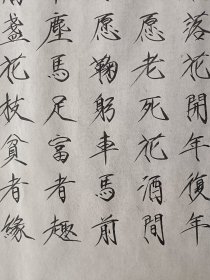 落花開年復年
愿老死花酒間
愿鞠躬車馬前
塵馬足富者趣
盞花枝貧者緣